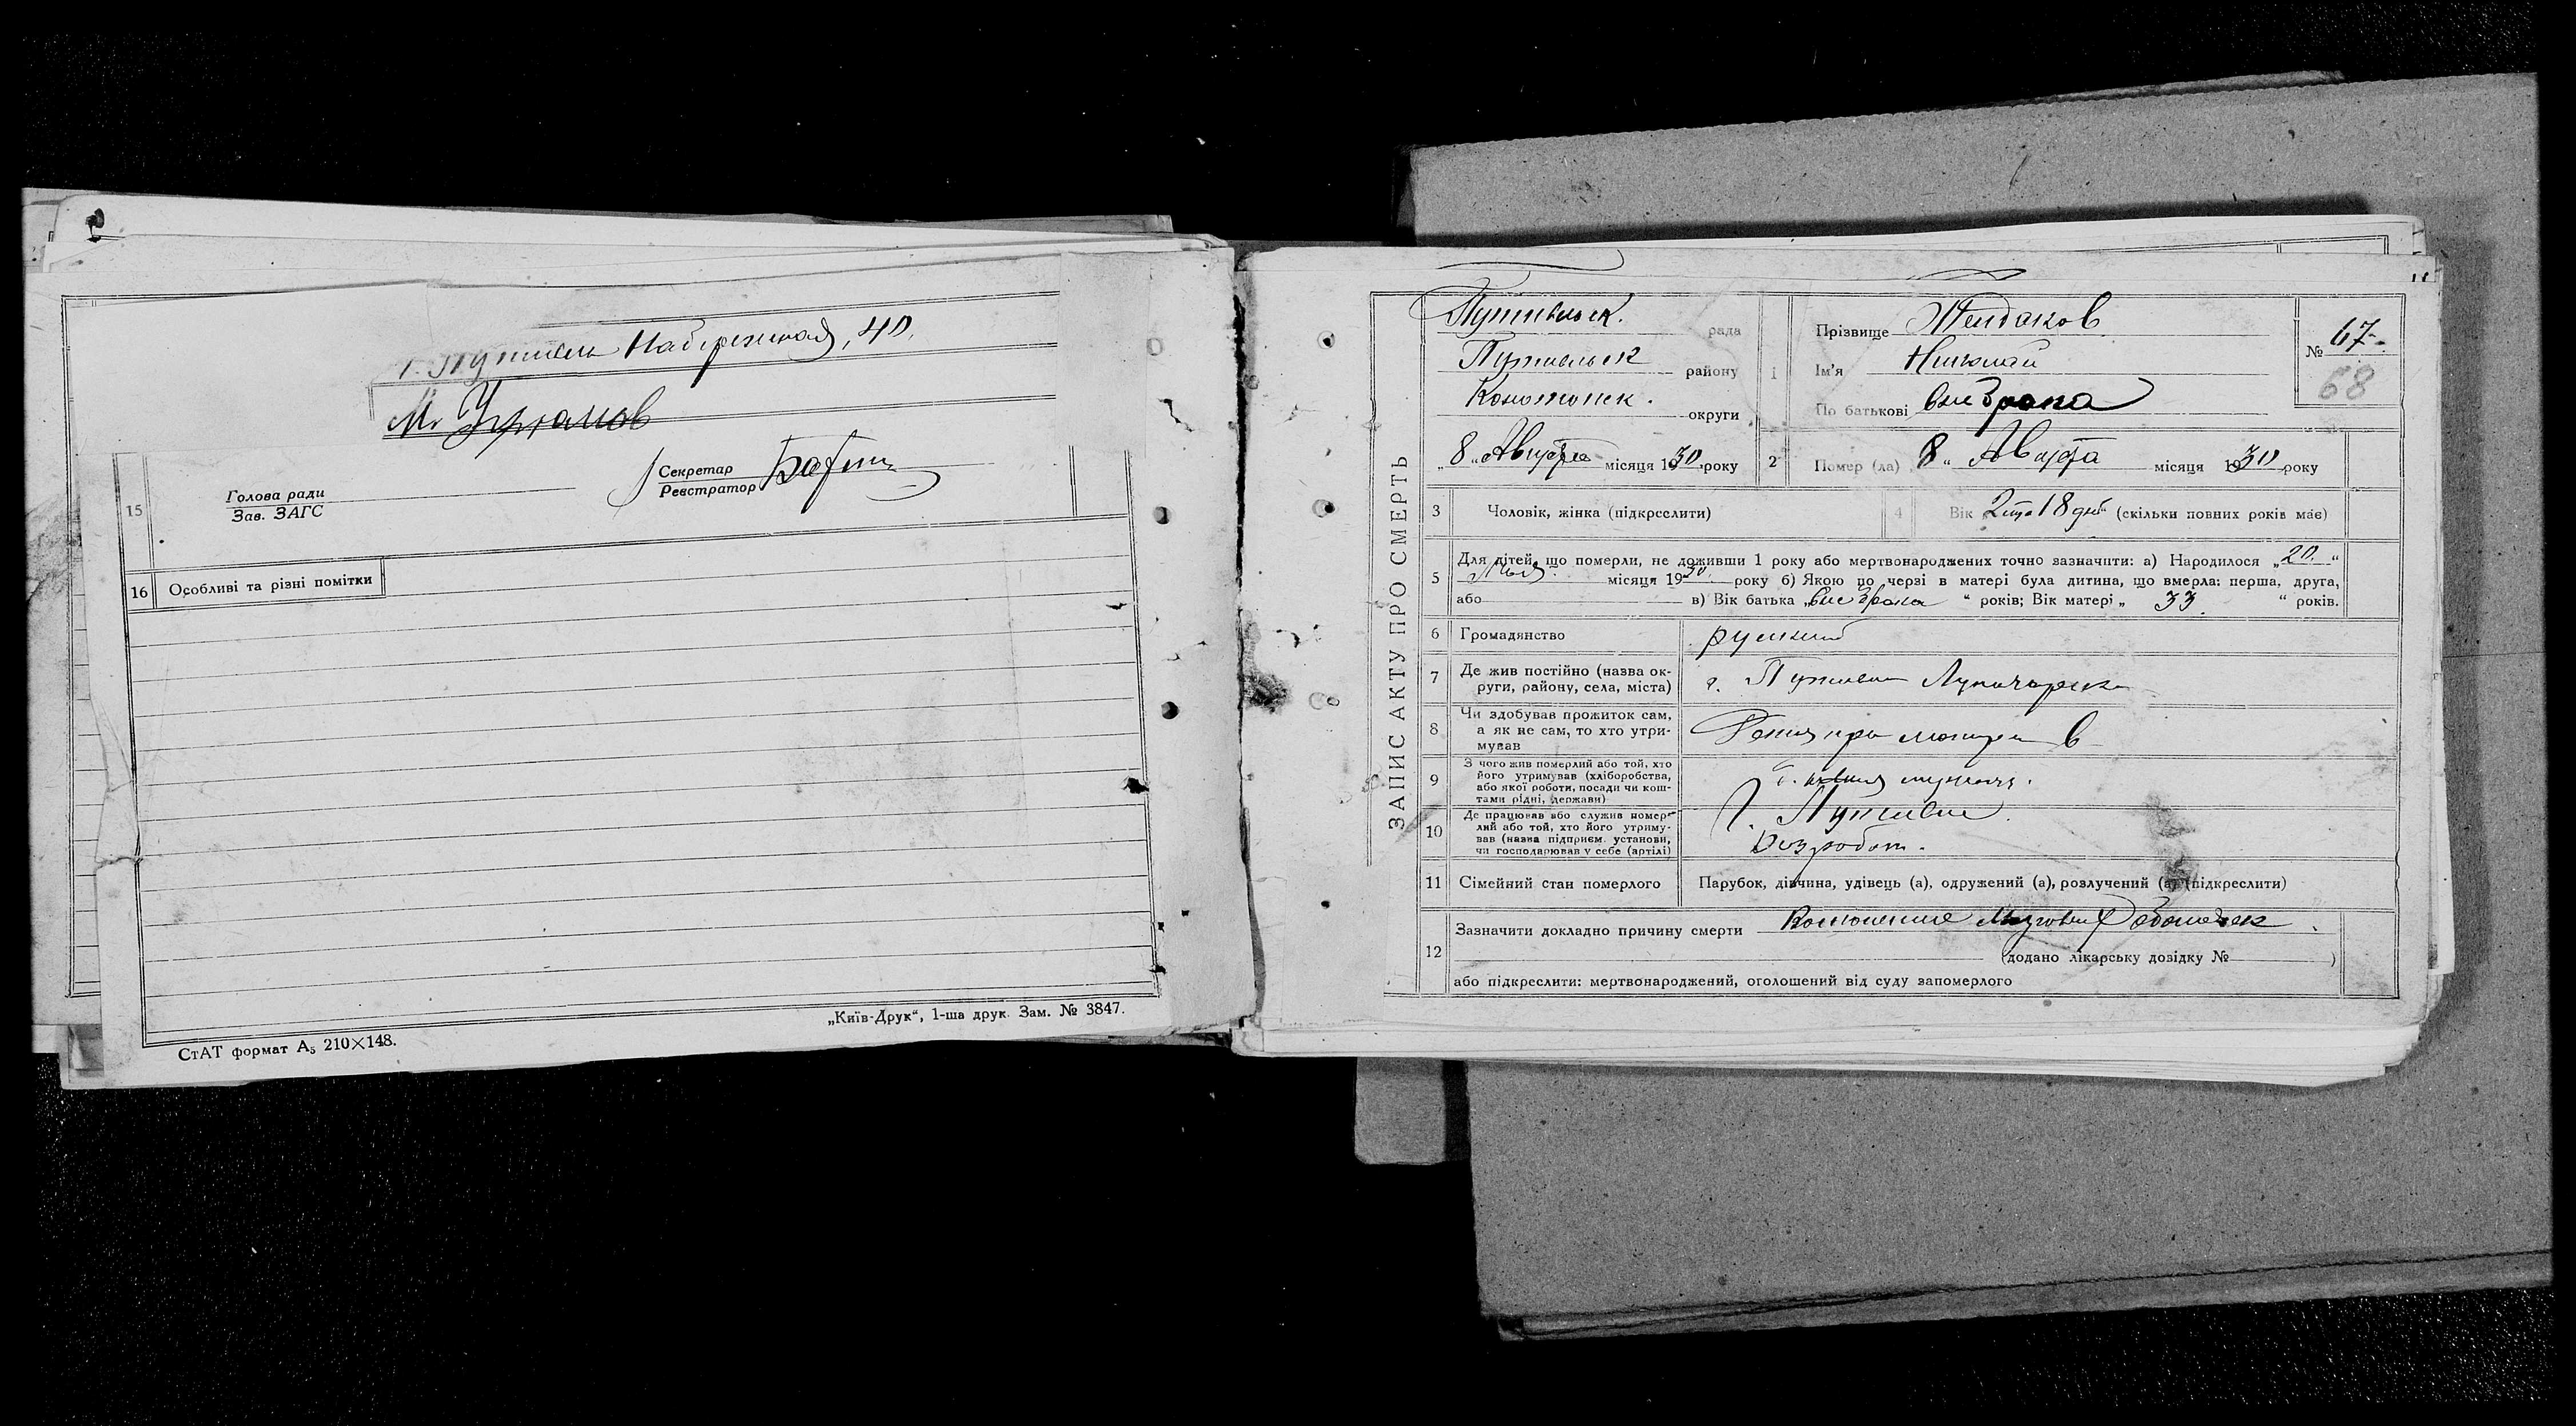 г. Путивль Набережная, 40.
15
Голова ради
Зав. ЗАГС
Секретар
Реєстратор
16 Особливі та різні помітки
„Київ-Друк“, 1-ша друк. Зам. № 3847.
СтАТ формат А₅ 210×148.
ЗАПИС АКТУ ПРО СМЕРТЬ
Путивльск. рада
Путивльск району
Конотопск. округи
„8„ Августа місяця 1930 року
1
Прізвище
Ім'я Николай
По батькові вне брака
№ 67.
68
2 Помер (ла) 8 „ Августа місяця 1930 року
3 Чоловік, жінка (підкреслити)
4 Вік 18 дней (скільки повних років має)
5 Для дітей, що померли, не доживши 1 року або мертвонароджених точно зазначити: а) Народилося „20.“
місяця 1930 року б) Якою по черзі в матері була дитина, що вмерла: перша, друга,
або в) Вік батька „вне брака“ років; Вік матері „ 33 “ років.
6 Громадянство русский
7 Де жив постійно (назва ок-
руги, району, села, міста)
г. Путивль
8 Чи здобував прожиток сам,
а як не сам, то хто утри-
мував
9 З чого жив померлий або той, хто
його утримував (хліборобства,
або якої роботи, посади чи кош-
тами рідні, держави)
10 Де працював або служив помер-
лий або той, хто його утриму-
вав (назва підприєм. установи,
чи господарював у себе (артілі)
г. Путивль.
Безработн.
11 Сімейний стан померлого Парубок, дівчина, удівець (а), одружений (а), розлучений (а) (підкреслити)
12 Зазначити докладно причину смерти
(додано лікарську довідку № )
або підкреслити: мертвонароджений, оголошений від суду запомерлого